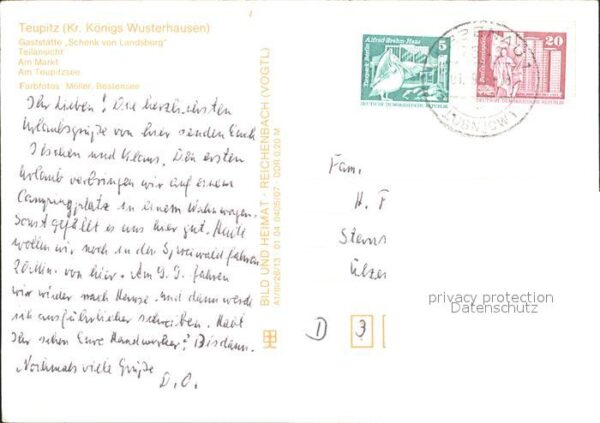 Teupitz (Kr. Königs Wusterhausen)
Gaststätte „Schenk von Landsberg"
Teilansicht
Am Markt
Am Teupitzsee
Farbfotos Möller, Bestensee
Ihr Lieben! Die herzlichsten
Urlaubsgrüße von hier senden Euch
und Klaus. Den ersten
Urlaub verbringen wir auf einem
Campingplatz in einem Wohnwagen.
Sonst gefällt es uns hier gut. Heute
wollen wir noch in den Spreewald fahren
20 Min. von hier. Am 9.9. fahren
wir wieder nach Hause und dann werde
ich ausführlicher schreiben. Habt
Ihr schon Eure Handwerker? Bis dann.
Nochmals viele Grüße
D. O.
BILD UND HEIMAT · REICHENBACH (VOGTL)
A1/B/28/13 01 04 0405/07 · DDR 0,20 M
Alfred-Brehm-Haus
Tierpark Berlin
5
DEUTSCHE DEMOKRATISCHE REPUBLIK
20
Berlin, Leninplatz
DEUTSCHE DEMOKRATISCHE REPUBLIK
Fam.
H. F
Sterns
Ülzer
D 3
privacy protection
Datenschutz